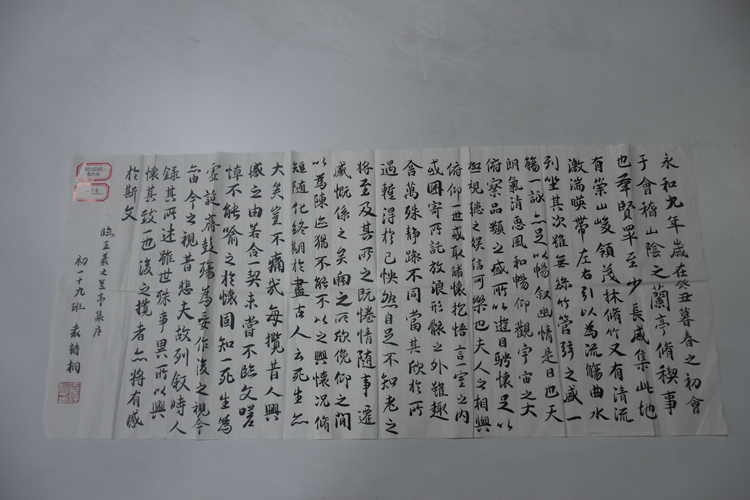 永和九年歲在癸丑暮春之初會
于會稽山陰之蘭亭脩稧事
也羣賢畢至少長咸集此地
有崇山峻領茂林脩竹又有清流
激湍暎帶左右引以為流觴曲水
列坐其次雖無絲竹管弦之盛一
觴一詠亦足以暢叙幽情是日也天
朗氣清惠風和暢仰觀宇宙之大
俯察品類之盛所以遊目騁懷足以
極視聽之娛信可樂也夫人之相與
俯仰一世或取諸懷抱悟言一室之內
或因寄所託放浪形骸之外雖趣
舍萬殊靜躁不同當其欣於所
遇暫得於己怏然自足不知老之
將至及其所之既惓情隨事遷
感慨係之矣向之所欣俛仰之間
以為陳迹猶不能不以之興懷況脩
短隨化終期於盡古人云死生亦
大矣豈不痛哉每攬昔人興
感之由若合一契未嘗不臨文嗟
悼不能喻之於懷固知一死生為
虛誕齊彭殤為妄作後之視今
亦由今之視昔悲夫故列叙時人
錄其所述雖世殊事異所以興
懷其致一也後之攬者亦將有感
於斯文
臨王羲之兰亭集序
初一十九班 袁詩桐